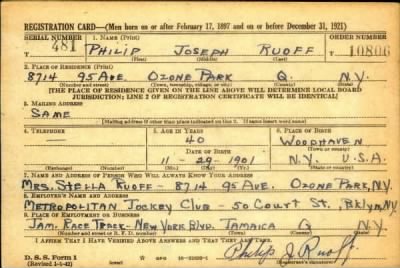 REGISTRATION CARD—(Men born on or after February 17, 1897 and on or before December 31, 1921)
SERIAL NUMBER 1. NAME (Print) ORDER NUMBER
481 PHILIP JOSEPH RUOFF 10806
(First) (Middle) (Last)
2. PLACE OF RESIDENCE (Print)
8714 95 AVE. OZONE PARK Q. N.Y.
(Number and street) (Town, township, village, or city) (County) (State)
[THE PLACE OF RESIDENCE GIVEN ON THE LINE ABOVE WILL DETERMINE LOCAL BOARD
JURISDICTION; LINE 2 OF REGISTRATION CERTIFICATE WILL BE IDENTICAL]
3. MAILING ADDRESS
SAME
[Mailing address if other than place indicated on line 2. If same insert word same]
4. TELEPHONE 5. AGE IN YEARS 6. PLACE OF BIRTH
— 40 WOODHAVEN
DATE OF BIRTH (Town or county)
11-29-1901 N.Y. U.S.A.
(Exchange) (Number) (Mo.) (Day) (Yr.) (State or country)
7. NAME AND ADDRESS OF PERSON WHO WILL ALWAYS KNOW YOUR ADDRESS
MRS. STELLA RUOFF - 8714 95 AVE. OZONE PARK, N.Y.
8. EMPLOYER'S NAME AND ADDRESS
METROPOLITAN JOCKEY CLUB - 50 COURT ST. BKLYN, N.Y.
9. PLACE OF EMPLOYMENT OR BUSINESS
JAM. RACE TRACK - NEW YORK BLVD. JAMAICA N.Y.
(Number and street or R. F. D. number) (Town) (County) (State)
I AFFIRM THAT I HAVE VERIFIED ABOVE ANSWERS AND THAT THEY ARE TRUE.
D. S. S. Form 1
(Revised 1-1-42) Philip J. Ruoff